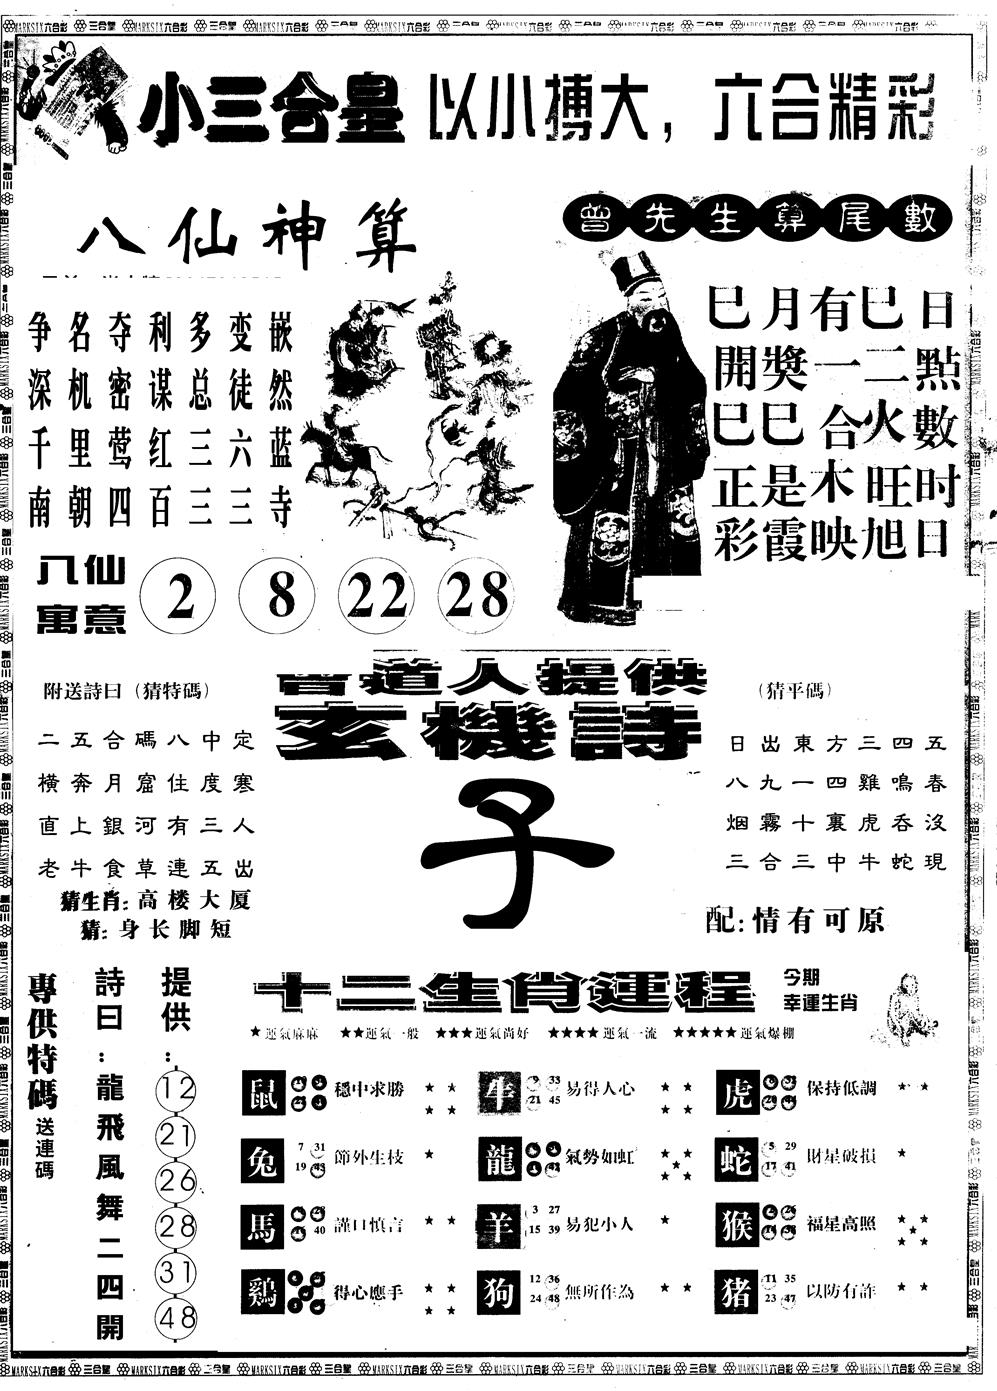 小三合皇 以小搏大，六合精彩
八仙神算
争名夺利多变嵌
深机密谋总徒然
千里莺红三六蓝
南朝四百三三寺
八仙寓意 2 8 22 28
曾先生算尾數
巳月有巳日
開獎一二點
巳巳合火數
正是木旺时
彩霞映旭日
曾道人提供
玄機詩
子
附送詩曰（猜特碼）
二五合碼八中定
橫奔月窟住度寒
直上銀河有三人
老牛食草連五出
猜生肖:高楼大厦
猜:身长脚短
（猜平碼）
日出東方三四五
八九一四雞鳴春
烟霧十裏虎吞沒
三合三中牛蛇現
配:情有可原
專供特碼送連碼
詩曰：龍飛風舞二四開
提供：
12
21
26
28
31
48
十二生肖運程 今期幸運生肖
★運氣麻麻 ★★運氣一般 ★★★運氣尚好 ★★★★運氣一流 ★★★★★運氣爆棚
鼠 穩中求勝 ★★★★
牛 33 21 45 易得人心 ★★★★
虎 保持低調 ★★
兔 7 31 19 43 節外生枝 ★
龍 氣勢如虹 ★★★★★
蛇 5 29 17 41 財星破損 ★
馬 40 謹口慎言 ★★
羊 3 27 15 39 易犯小人 ★
猴 福星高照 ★★★★★
鷄 得心應手 ★★★★
狗 12 36 24 48 無所作為 ★★
猪 11 35 23 47 以防有詐 ★★
MARKSIX六合彩 三合皇